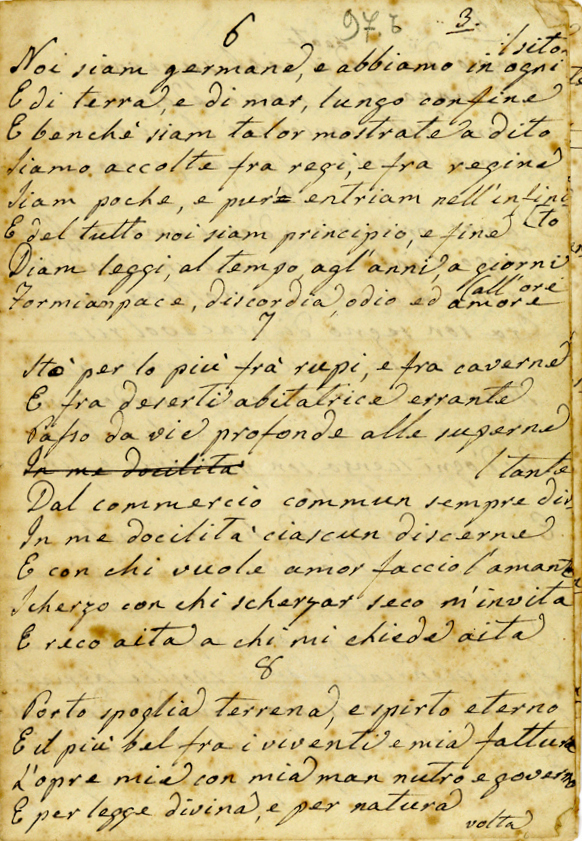 6 973 3.
Noi siam germane, e abbiamo in ogni sito
E di terra, e di mar, lungo confine
E benchè siam talor mostrate a dito
Siamo accolte fra regi, e fra regine
Siam poche, e pur entriam nell'infinito
E del tutto noi siam principio, e fine
Diam leggi, al tempo, agl'anni, a giorni all'ore
Formianpace, discordia, odio ed amore
7
Stò per lo più frà rupi, e fra caverne
E fra deserti abitatrice errante
Passo da vie profonde alle superne
In me docilità
Dal commercio commun sempre distante
In me docilità ciascun discerne
E con chi vuole amor faccio l'amante
Scherzo con chi scherzar seco m'invita
E reco aita a chi mi chiede aita
8
Porto spoglia terrena, e spirto eterno
E il più bel fra i viventi e mia fattura
L'opre mie con mia man nutro e governo
E per legge divina, e per natura
volta